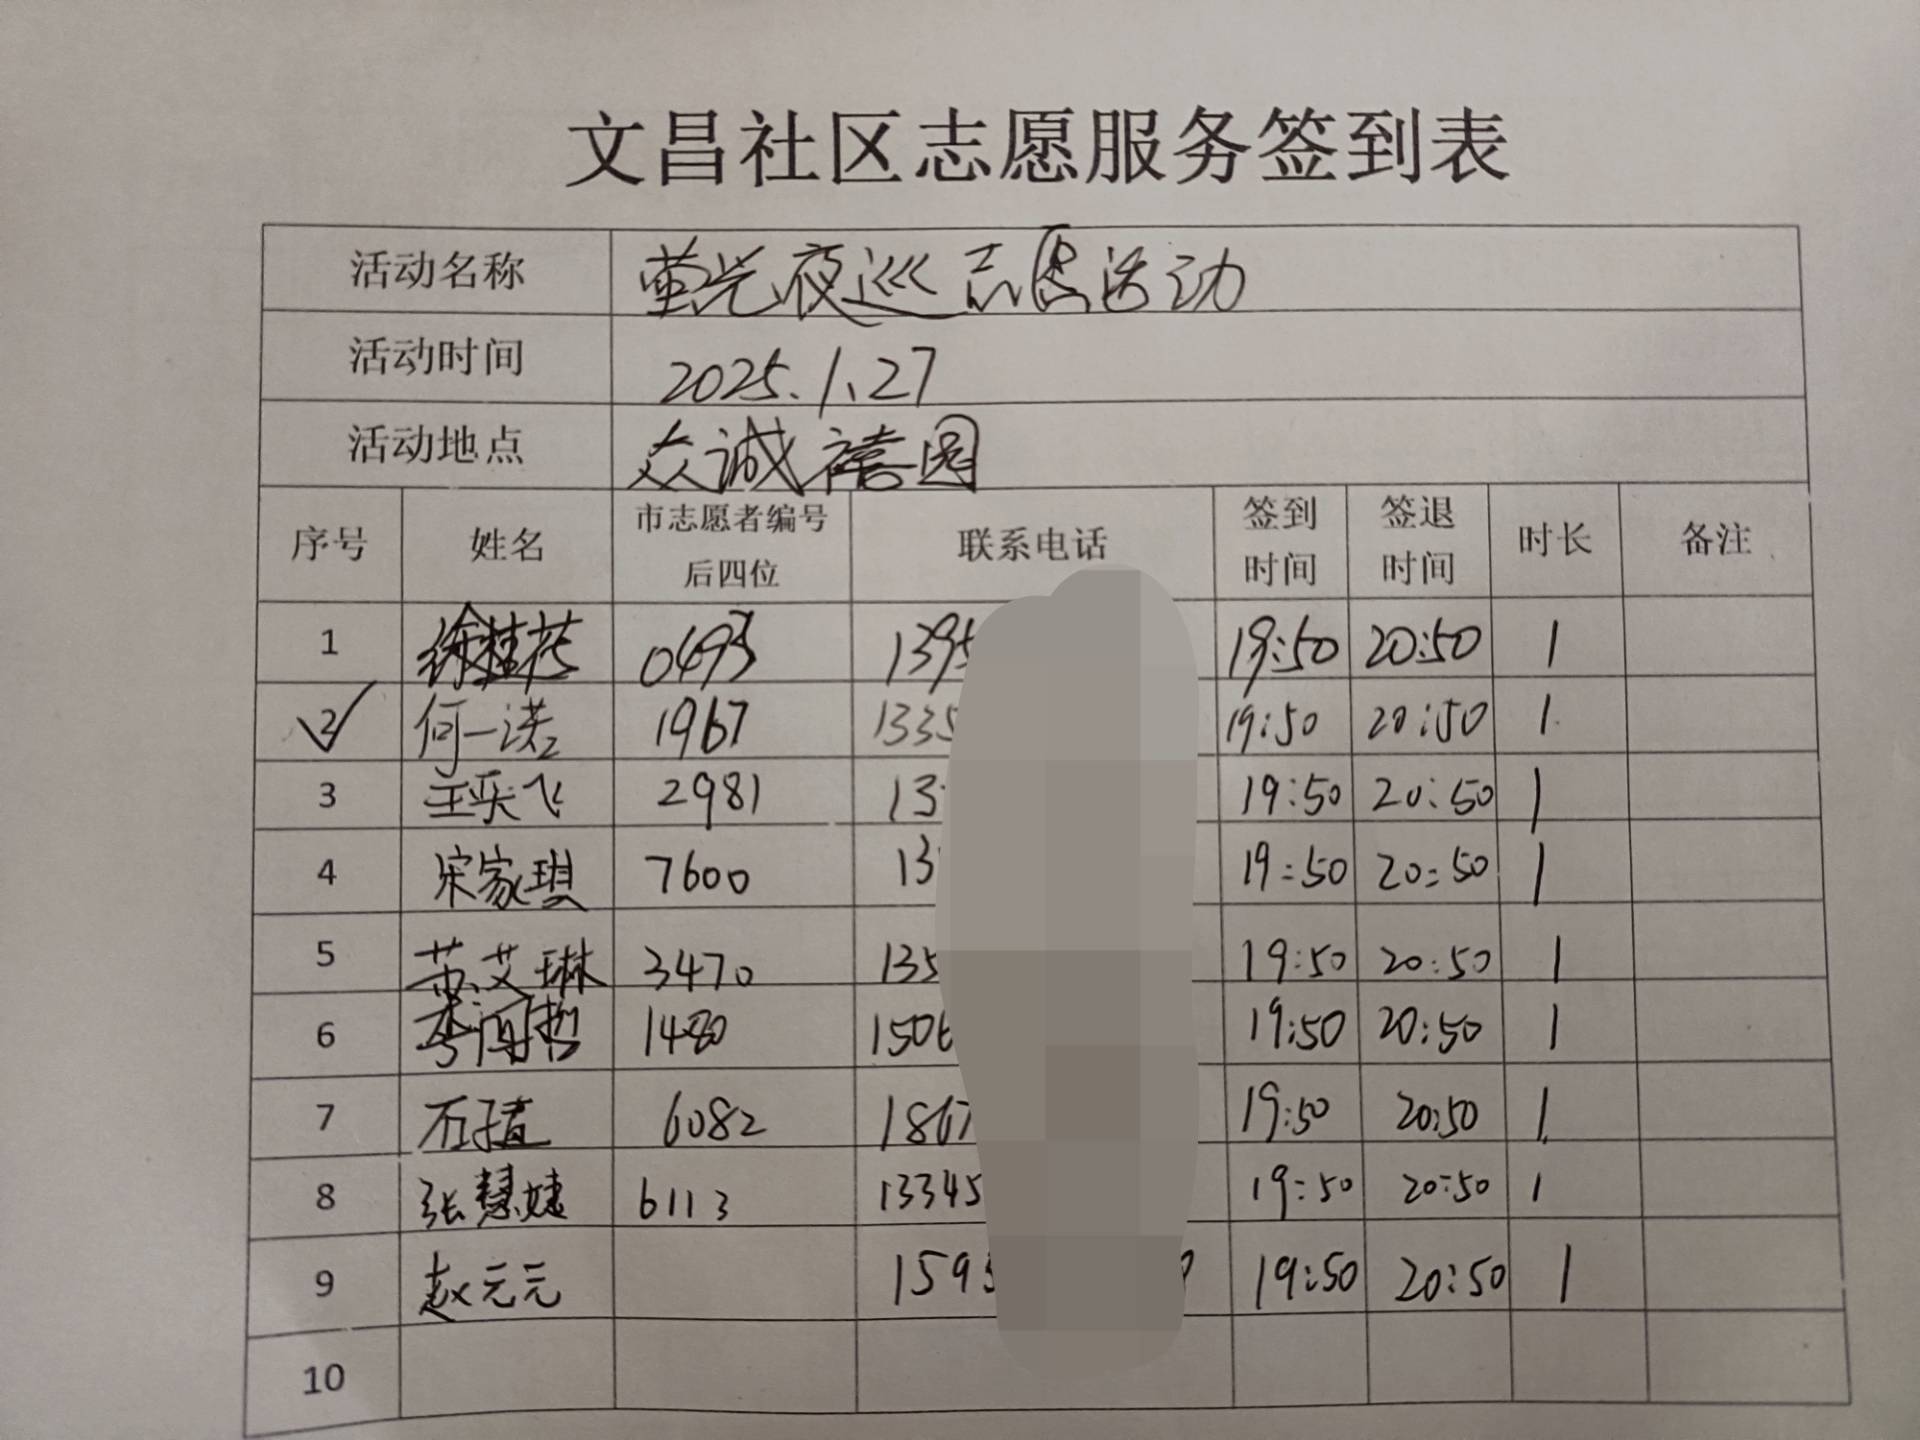 文昌社区志愿服务签到表
活动名称 萤光夜巡志愿活动
活动时间 2025.1.27
活动地点 众诚禧园
序号 姓名 市志愿者编号后四位 联系电话 签到时间 签退时间 时长 备注
1 徐桂花 0693 1395 19:50 20:50 1
2 何一诺 1967 1335 19:50 20:50 1
3 王乐飞 2981 13 19:50 20:50 1
4 宋家琪 7600 13 19:50 20:50 1
5 艾琳 3470 135 19:50 20:50 1
6 李闻哲 1480 1506 19:50 20:50 1
7 石 6082 1867 19:50 20:50 1
8 张慧婕 6113 13345 19:50 20:50 1
9 赵元元 1595 19:50 20:50 1
10